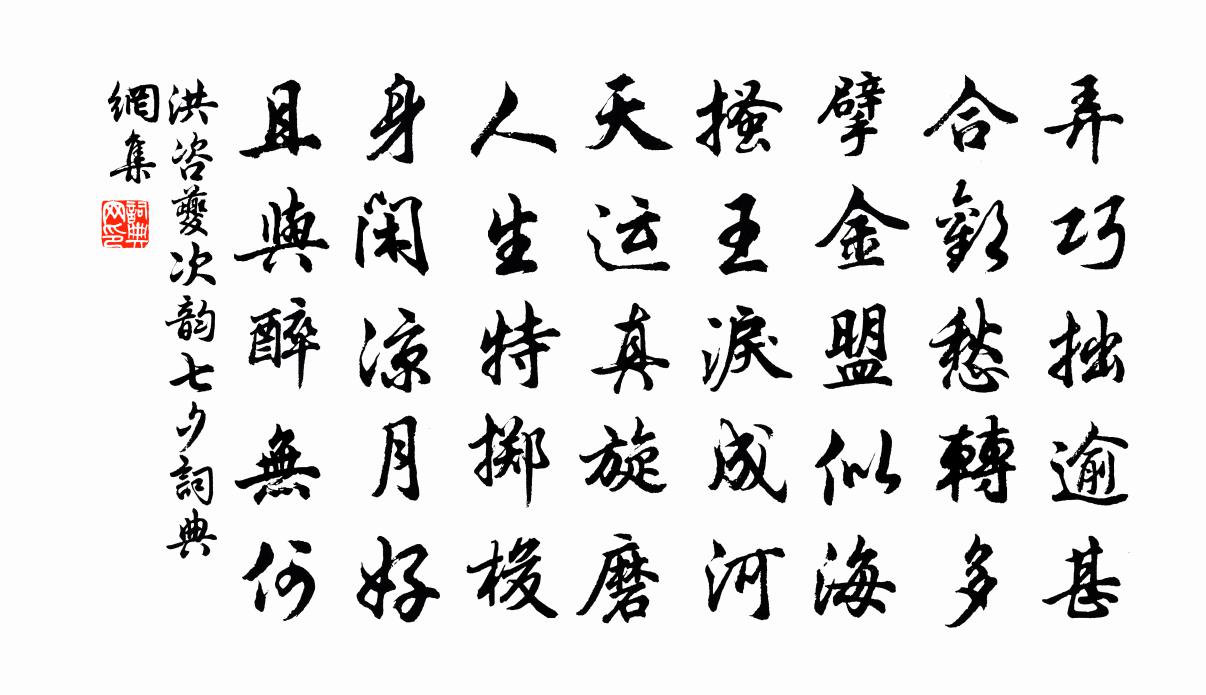 弄巧拙逾甚
合歡愁轉多
擘金盟似海
搔玉淚成河
天运真旋磨
人生特掷梭
身闲涼月好
且與醉無何
洪咨夔次韵七夕詞典
網集
詞典
网印